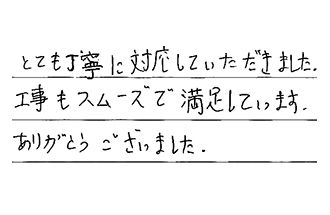 とても丁寧に対応していただきました.
工事もスムーズで満足しています.
ありがとうございました.